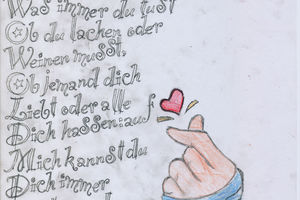 Was immer du tust
Ob du lachen oder
Weinen musst,
Ob jemand dich
Liebt oder alle
Dich hassen: auf
Mich kannst du
Dich immer